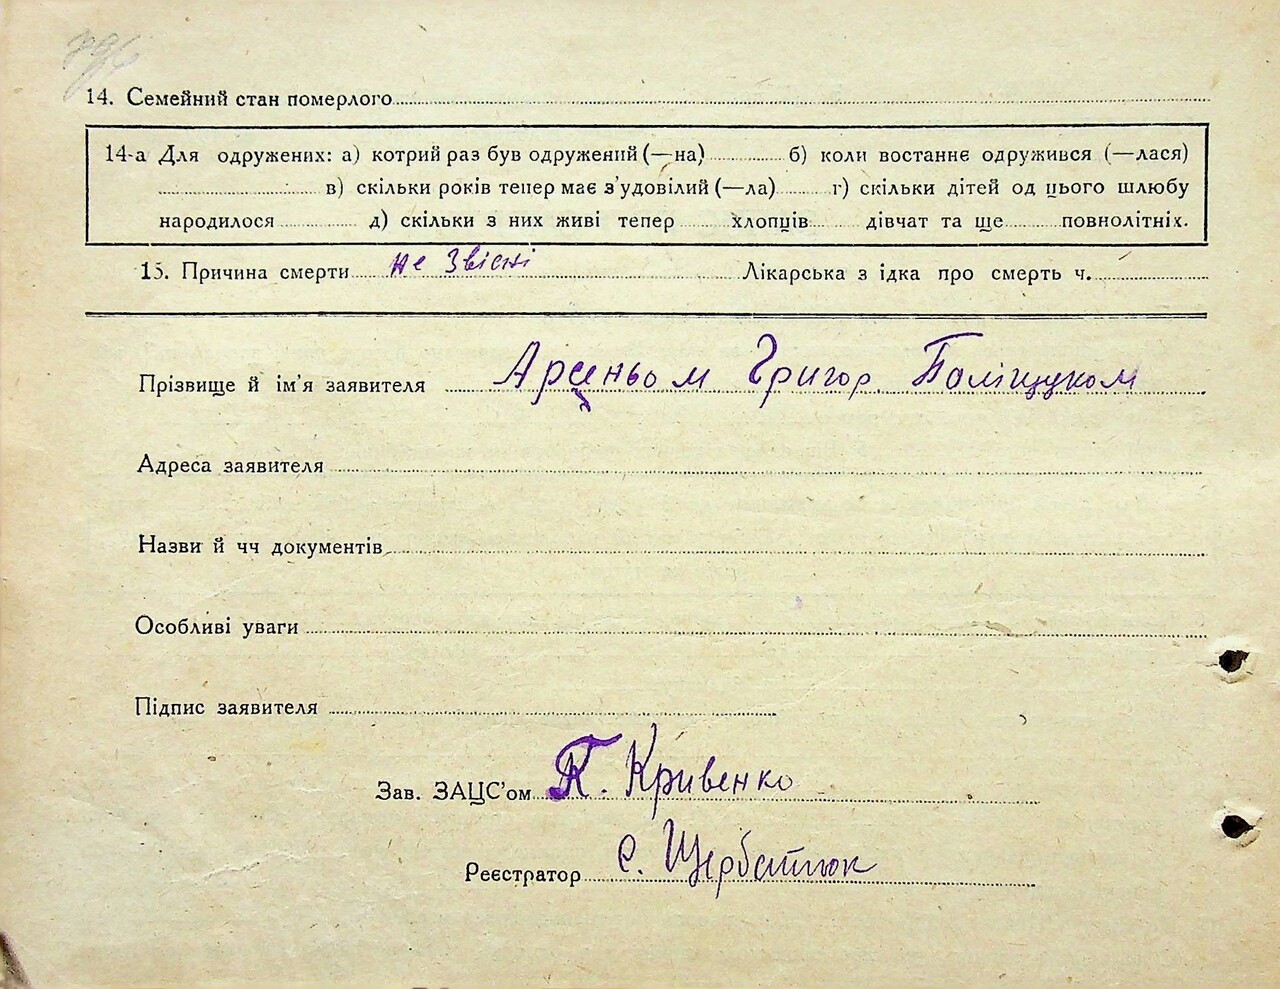 14. Семейний стан померлого
14-а Для одружених: а) котрий раз був одружений (—на) б) коли востаннє одружився (—лася)
в) скільки років тепер має з'удовілий (—ла) г) скільки дітей од цього шлюбу
народилося д) скільки з них живі тепер хлопців дівчат та ще повнолітніх.
15. Причина смерти не звісні Лікарська з ідка про смерть ч.
Прізвище й ім'я заявителя Арценьом Григор Поліщуком
Адреса заявителя
Назви й чч документів
Особливі уваги
Підпис заявителя
Зав. ЗАЦС'ом П. Кривенко
Реєстратор С. Щербатюк